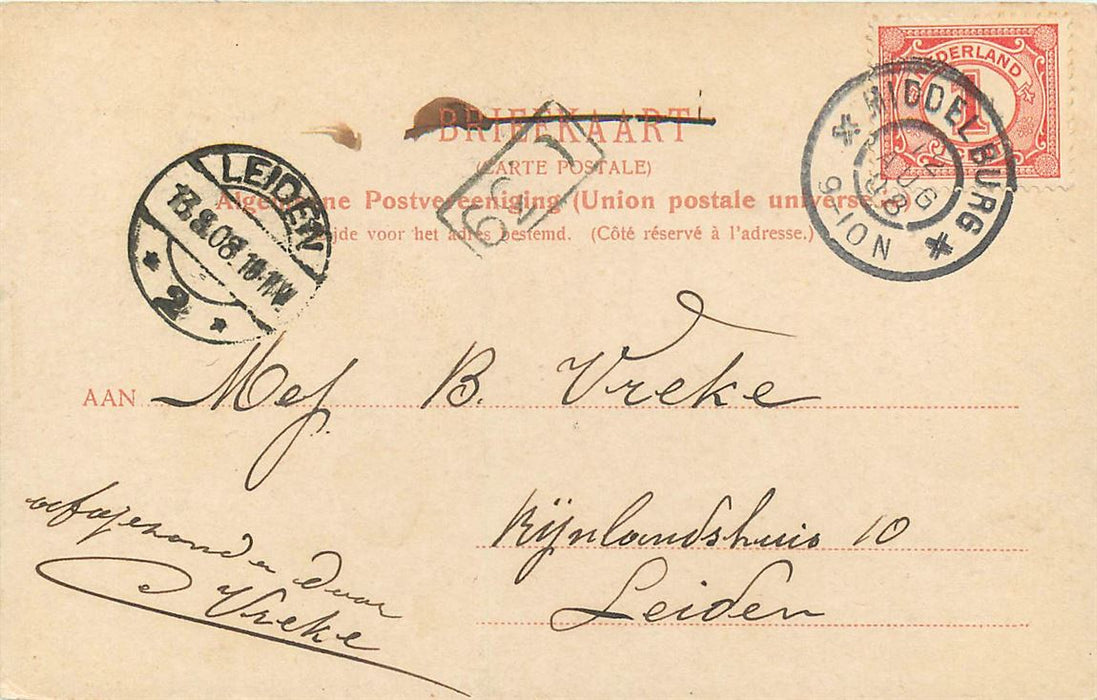 NEDERLAND
1
MIDDELBURG
12 AUG 08
9-10N
BRIEFKAART
(CARTE POSTALE)
Algemeene Postvereeniging (Union postale universelle)
Zijde voor het adres bestemd. (Côté réservé à l'adresse.)
LEIDEN
13.8.08.
2
AAN Mej. B. Vreke
Rijnlandshuis 10
Leiden
afgezonden door
Vreke